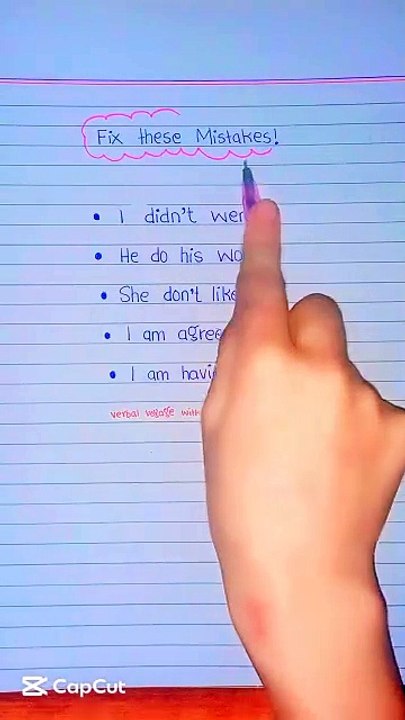 Fix these Mistakes!
• I didn't wen
• He do his wo
• She don't like
• I am agree
• I am havi
verbal with
CapCut